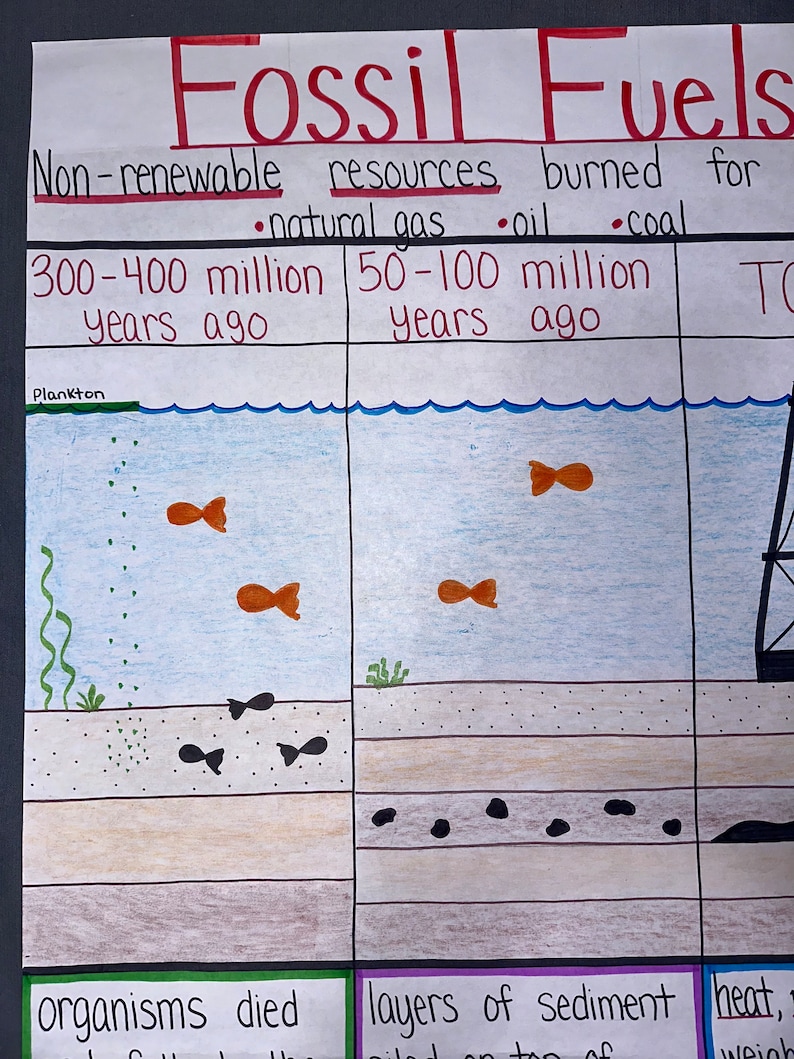 Fossil Fuels
Non-renewable resources burned for
•natural gas •oil •coal
300-400 million
years ago
50-100 million
years ago
Plankton
organisms died
layers of sediment
piled on top of
heat,